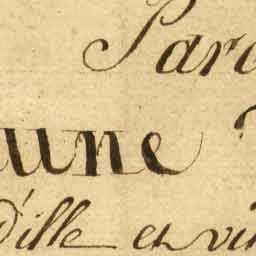 Paro
une
d'ille et vi